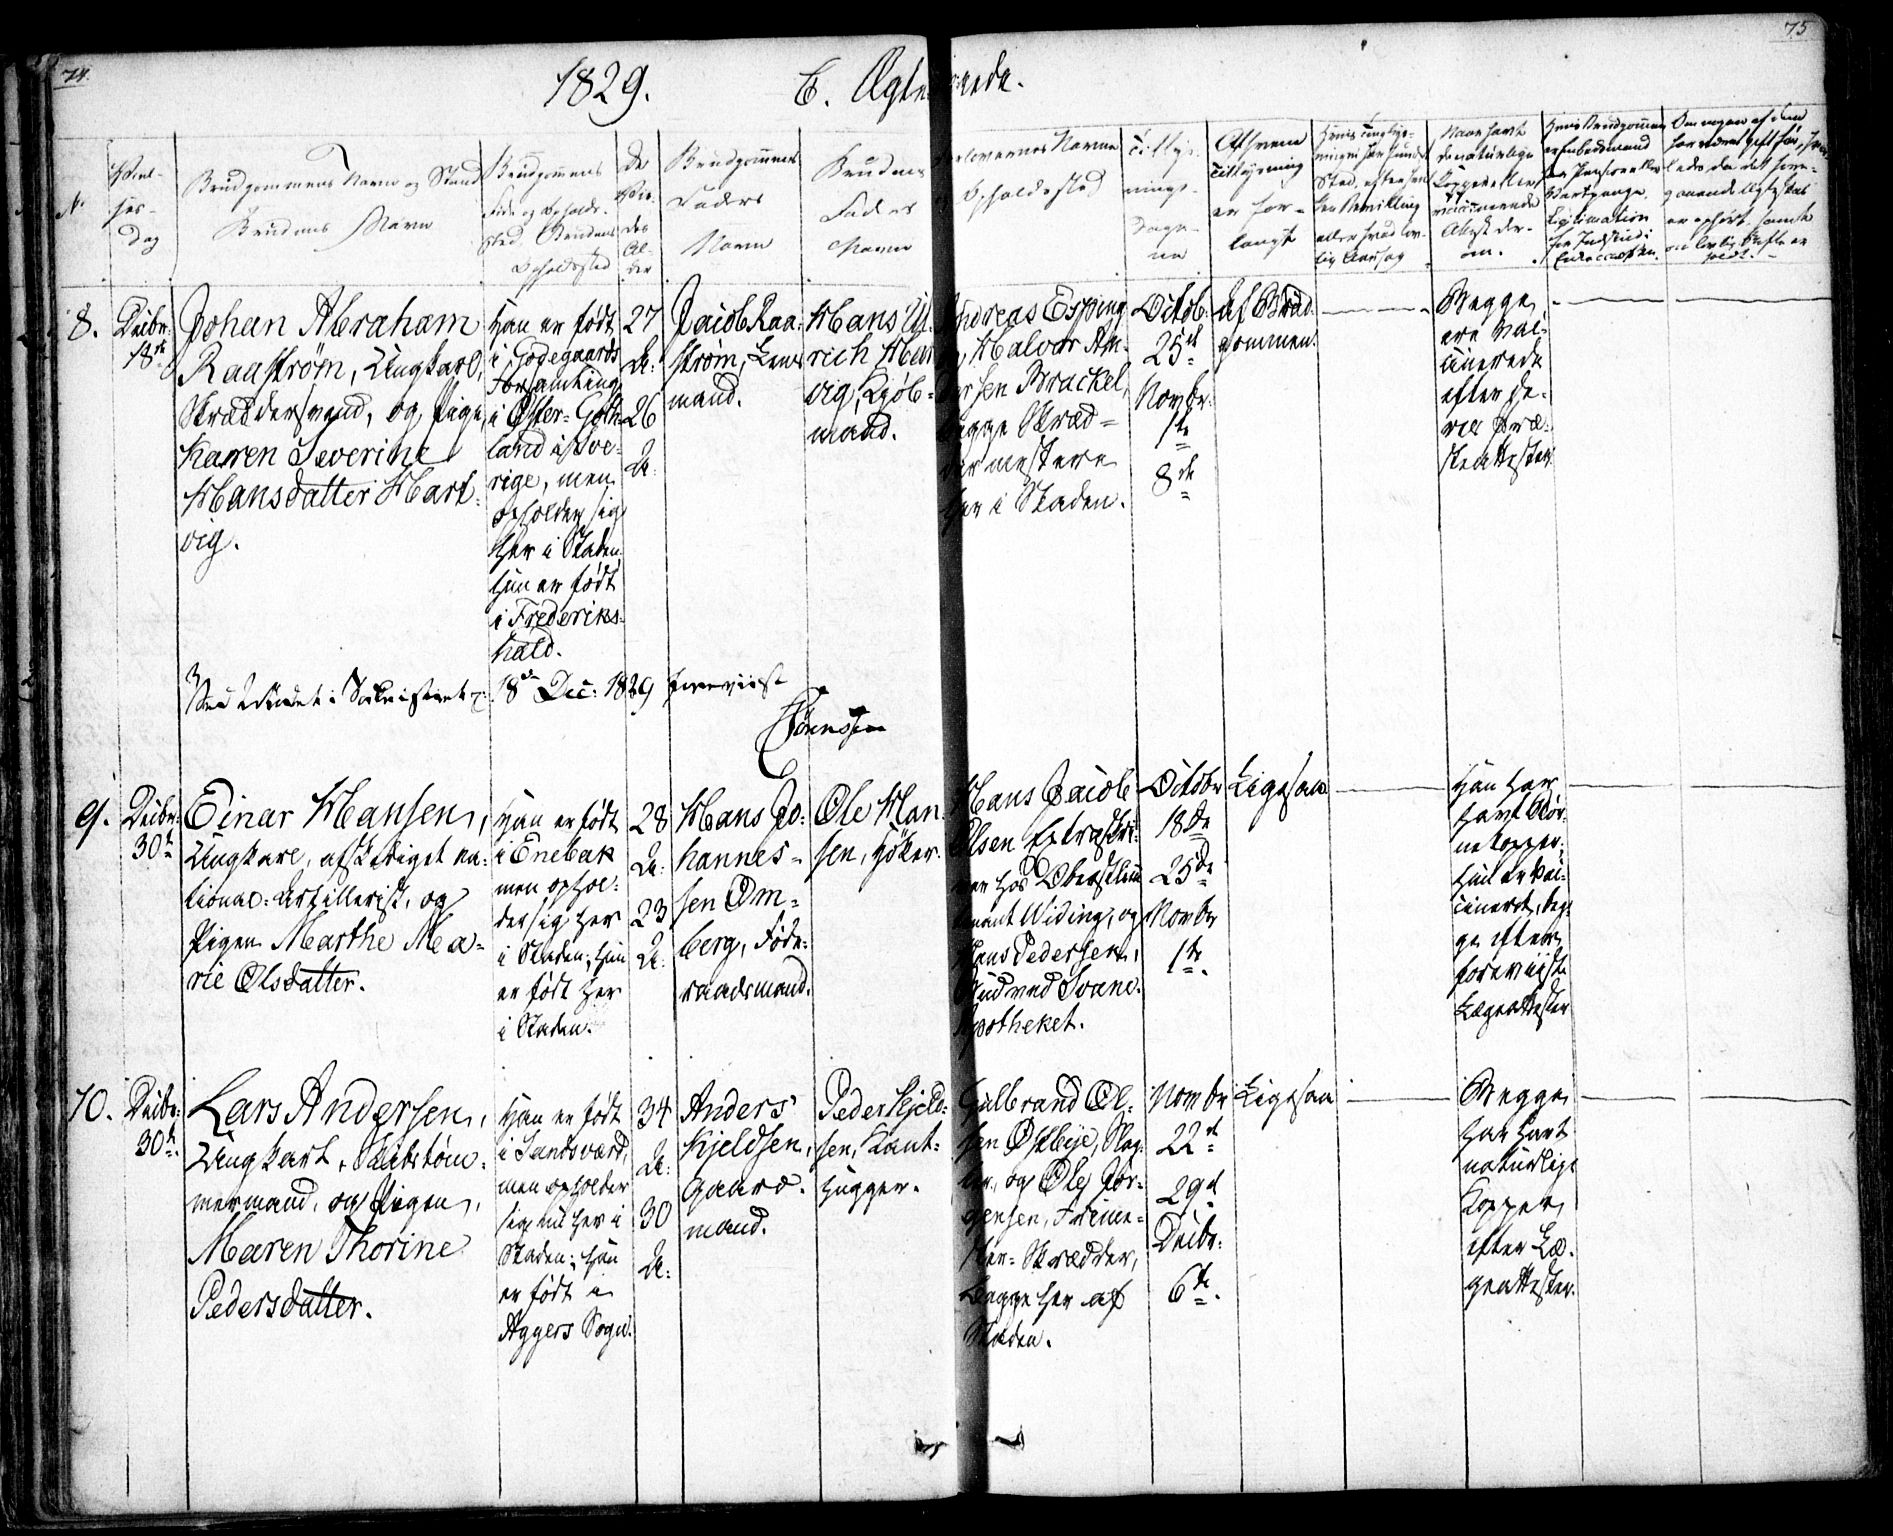 74.
75
1829.
C. Ægteviede.
No
Viel-
ses-
Dag
Brudgommens Navn og Stand
Brudens Navn
Brudgommens
Føde og Opholds-
sted. Brudens
Opholdssted
De
Vie-
des
Al-
der
Brudgommens
Faders
Navn
Brudens
Faders
Navn
Forlovernes Navne
og Opholdssted
Tillys-
nings-
Dage-
ne
Af hvem
Tillysning
er for-
langt
Naar havt
de naturlige
Kopper eller
vaccinerede
Attest der-
om.
8.
Decbr:
18de
Johan Abraham
Raastrøm, Ungkarl,
Skræddersvend, og Pige
Karen Severine
Hansdatter Hart-
vig.
Han er født
i Godegaards
Forsamling
i Øster-Goth-
land i Sve-
rige, men
opholder sig
her i Staden,
hun er født
i Frederiks-
hald.
27
Aa:
26
Aa:
Jacob Raa-
strøm, Lens-
mand.
Hans Ul-
rich Hart-
vig, Kjøb-
mand.
Andreas Esping
og Halvor An-
dersen Brackel,
begge Skræd-
dermestere
her i Staden.
Octob:
25de
Novbr:
1te
8de
Af Brud-
gommen.
Begge
ere vac-
cinerede
efter de-
res Præ-
steattester
18de Dec: 1829 foreviist
Sørenssen
9.
Decbr:
30te
Einar Hansen,
Ungkarl, afskediget na-
tional-Artillerist, og
Pigen Marthe Ma-
rie Olsdatter.
Han er født
i Enebak
men ophol-
der sig her
i Staden; hun
er født her
i Staden.
28
Aa:
23
Aa:
Hans Jo-
hannes-
sen Om-
berg, Føde-
raadsmand.
Ole Han-
sen, Høker.
Hans Jacob
Olsen Extraskri-
ver hos Oberstlieu-
tenant Widing, og
Hans Pedersen,
Bud ved Svane-
Apotheket.
Octobr
18de
25de
Novbr
1te.
Ligesaa
Han har
havt Bør-
nekopper,
hun er vac-
cineret, beg-
ge efter
foreviiste
Lægeattester
10.
Decbr:
30te.
Lars Andersen,
Ungkarl, Skibstøm-
mermand, og Pigen,
Maren Thorine
Pedersdatter.
Han er født
i Sandsværd,
men opholder
sig nu her i
Staden; hun
er født i
Aggers Sogn.
34
Aa:
30
Aa:
Anders
Kjeldsen,
Gaard-
mand.
Peder Kjeld-
sen, Tømt-
hugger.
Gulbrand Ol-
sen Østbye, Slag-
ter, og Ole Jør-
gensen, Frime-
ster-Skrædder,
begge her af
Staden.
Novembr
22de
29de
Decbr:
6te.
Ligesaa
Begge
har havt
naturlige
Kopper
efter Læ-
geattester.